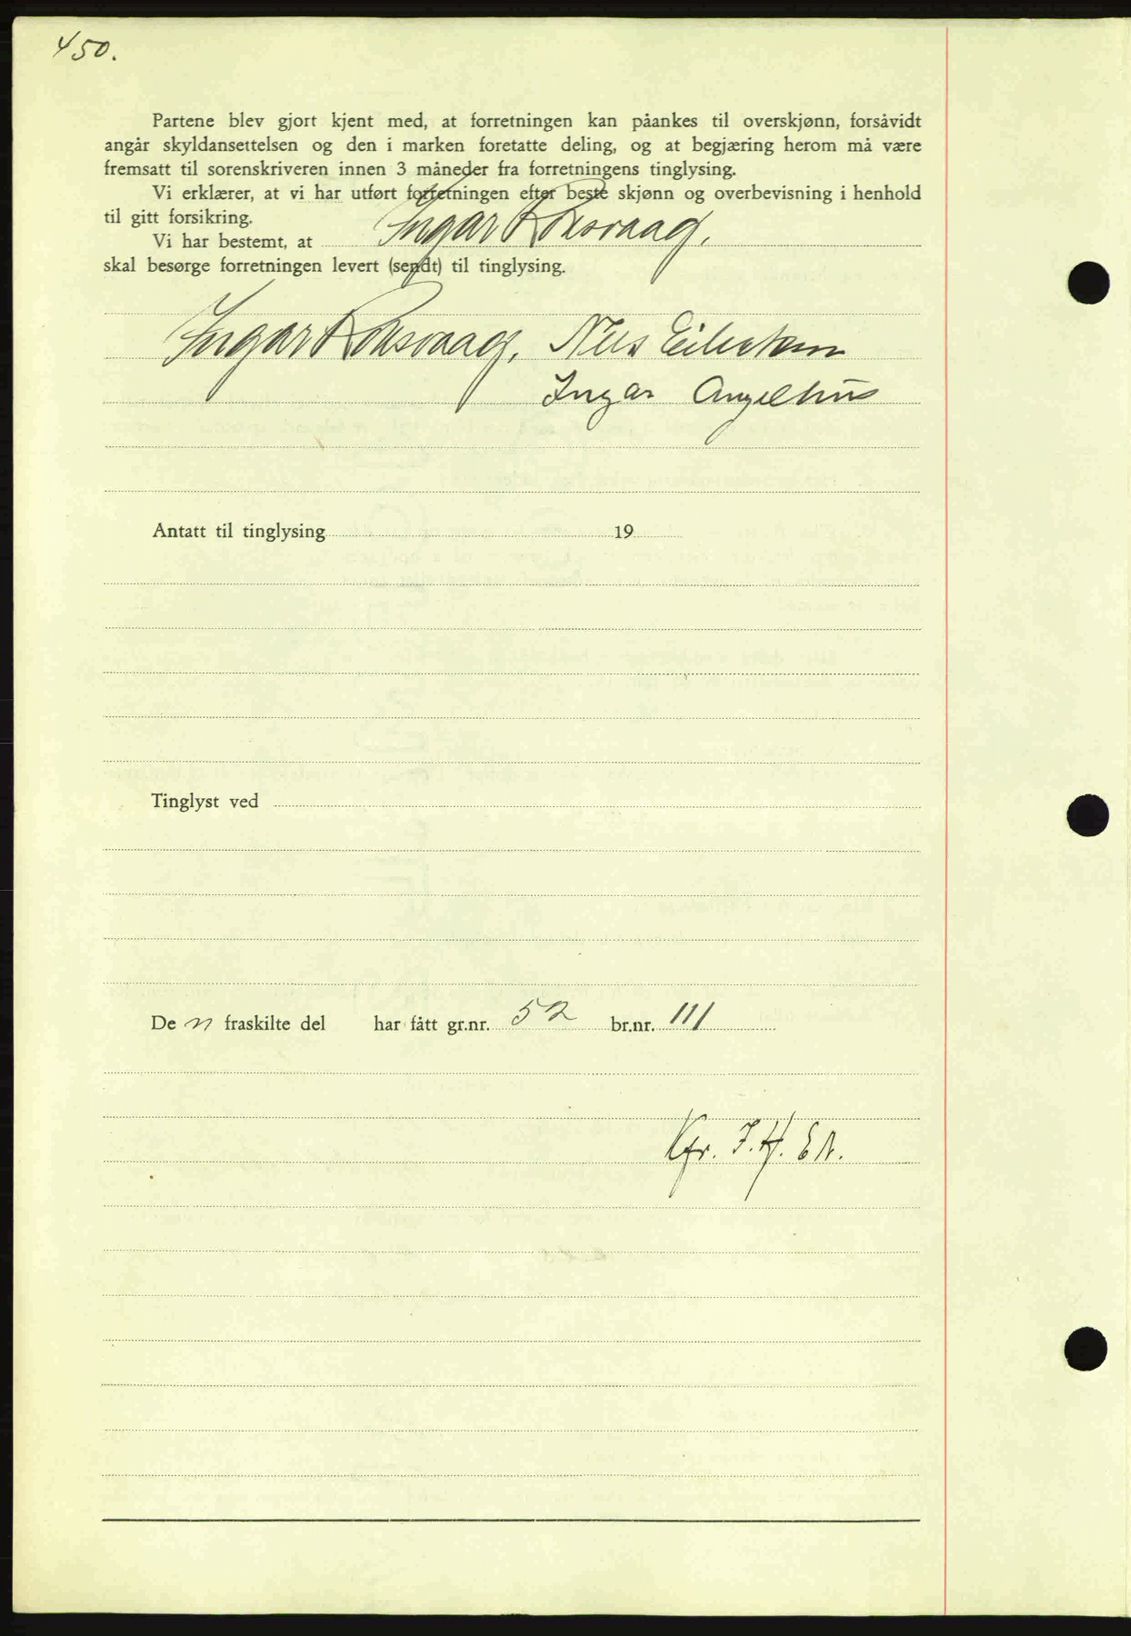 450.
Partene blev gjort kjent med, at forretningen kan påankes til overskjønn, forsåvidt
angår skyldansettelsen og den i marken foretatte deling, og at begjæring herom må være
fremsatt til sorenskriveren innen 3 måneder fra forretningens tinglysing.
Vi erklærer, at vi har utført forretningen efter beste skjønn og overbevisning i henhold
til gitt forsikring.
Vi har bestemt, at Ingar Roksvaag.
skal besørge forretningen levert (sendt) til tinglysing.
Ingar Roksvaag. Nils
Ingar
Antatt til tinglysing 19
Tinglyst ved
De n fraskilte del har fått gr.nr. 52 br.nr. 111
Kfr. J.H. EN.